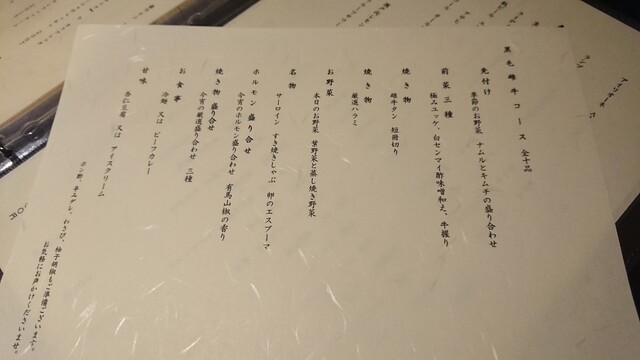 黒毛雌牛コース 全十品
先付け
季節のお野菜 ナムルとキムチの盛り合わせ
前菜三種
極みユッケ、白センマイ酢味噌和え、牛握り
焼き物
雌牛タン 短冊切り
焼き物
厳選ハラミ
お野菜
本日のお野菜 葉野菜と蒸し焼き野菜
名物
サーロイン すき焼きしゃぶ 卵のエスプーマ
ホルモン盛り合せ
今宵のホルモン盛り合わせ 有馬山椒の香り
焼き物盛り合せ
今宵の厳選盛り合わせ 三種
お食事
冷麺 又は ビーフカレー
甘味
杏仁豆腐 又は アイスクリーム
ポン酢、辛みダレ、わさび、柚子胡椒もご準備ございます。
お気軽にお声かけくださいませ。